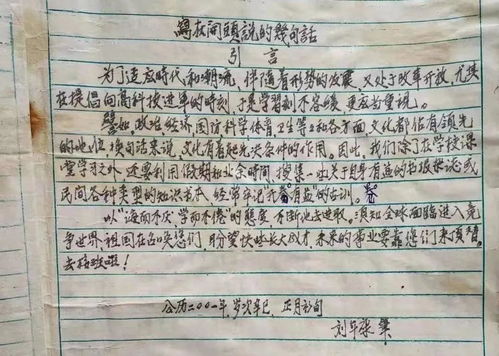 写在前头說的幾句話
引言
为了适应時代和潮流，伴随着形势的发展，又处于改革开放，尤其
在提倡向高科技进军的时刻，学習刻不容缓，更应当重視。
譬如，政治、经济、国防、科学、体育、卫生等之和各方面，文化都佔有领先
的地位，换句話来說，文化有着起先决条件的作用。因此，我们除了在学校課
堂学习之外，还要利用假期和业余時间，搜集一些关于自身有益的书报杂志或
民间各种类型的知识书本，经常牢记开卷有益的古训。
以"誨而不厌，学而不倦"的態度，不断地去進取。须知全球面临进入竞
争世界，祖国在召唤您们，盼望快些长大成才，未来的事业要靠您们来頂替，
去拓現啦！
公历二〇〇一年，岁次辛巳，正月初旬
刘年